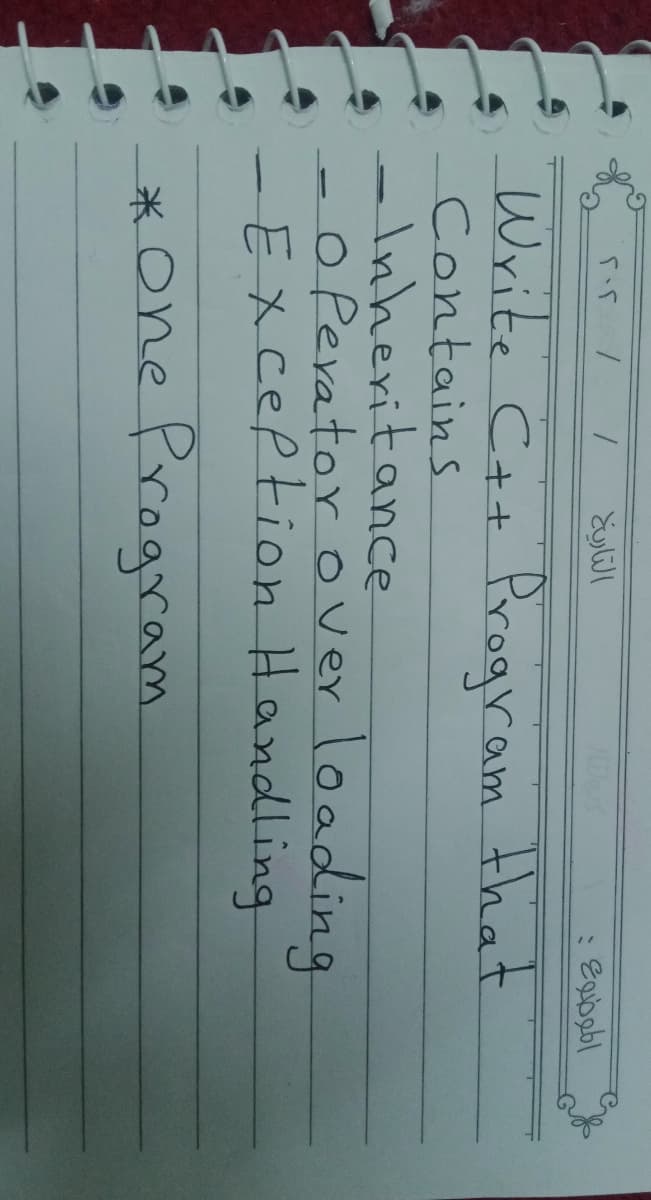 الموضوع :
التاريخ / / ٢٠٢
Write C++ Program that
Contains
- Inheritance
- Operator overloading
- Exception Handling
* One Program